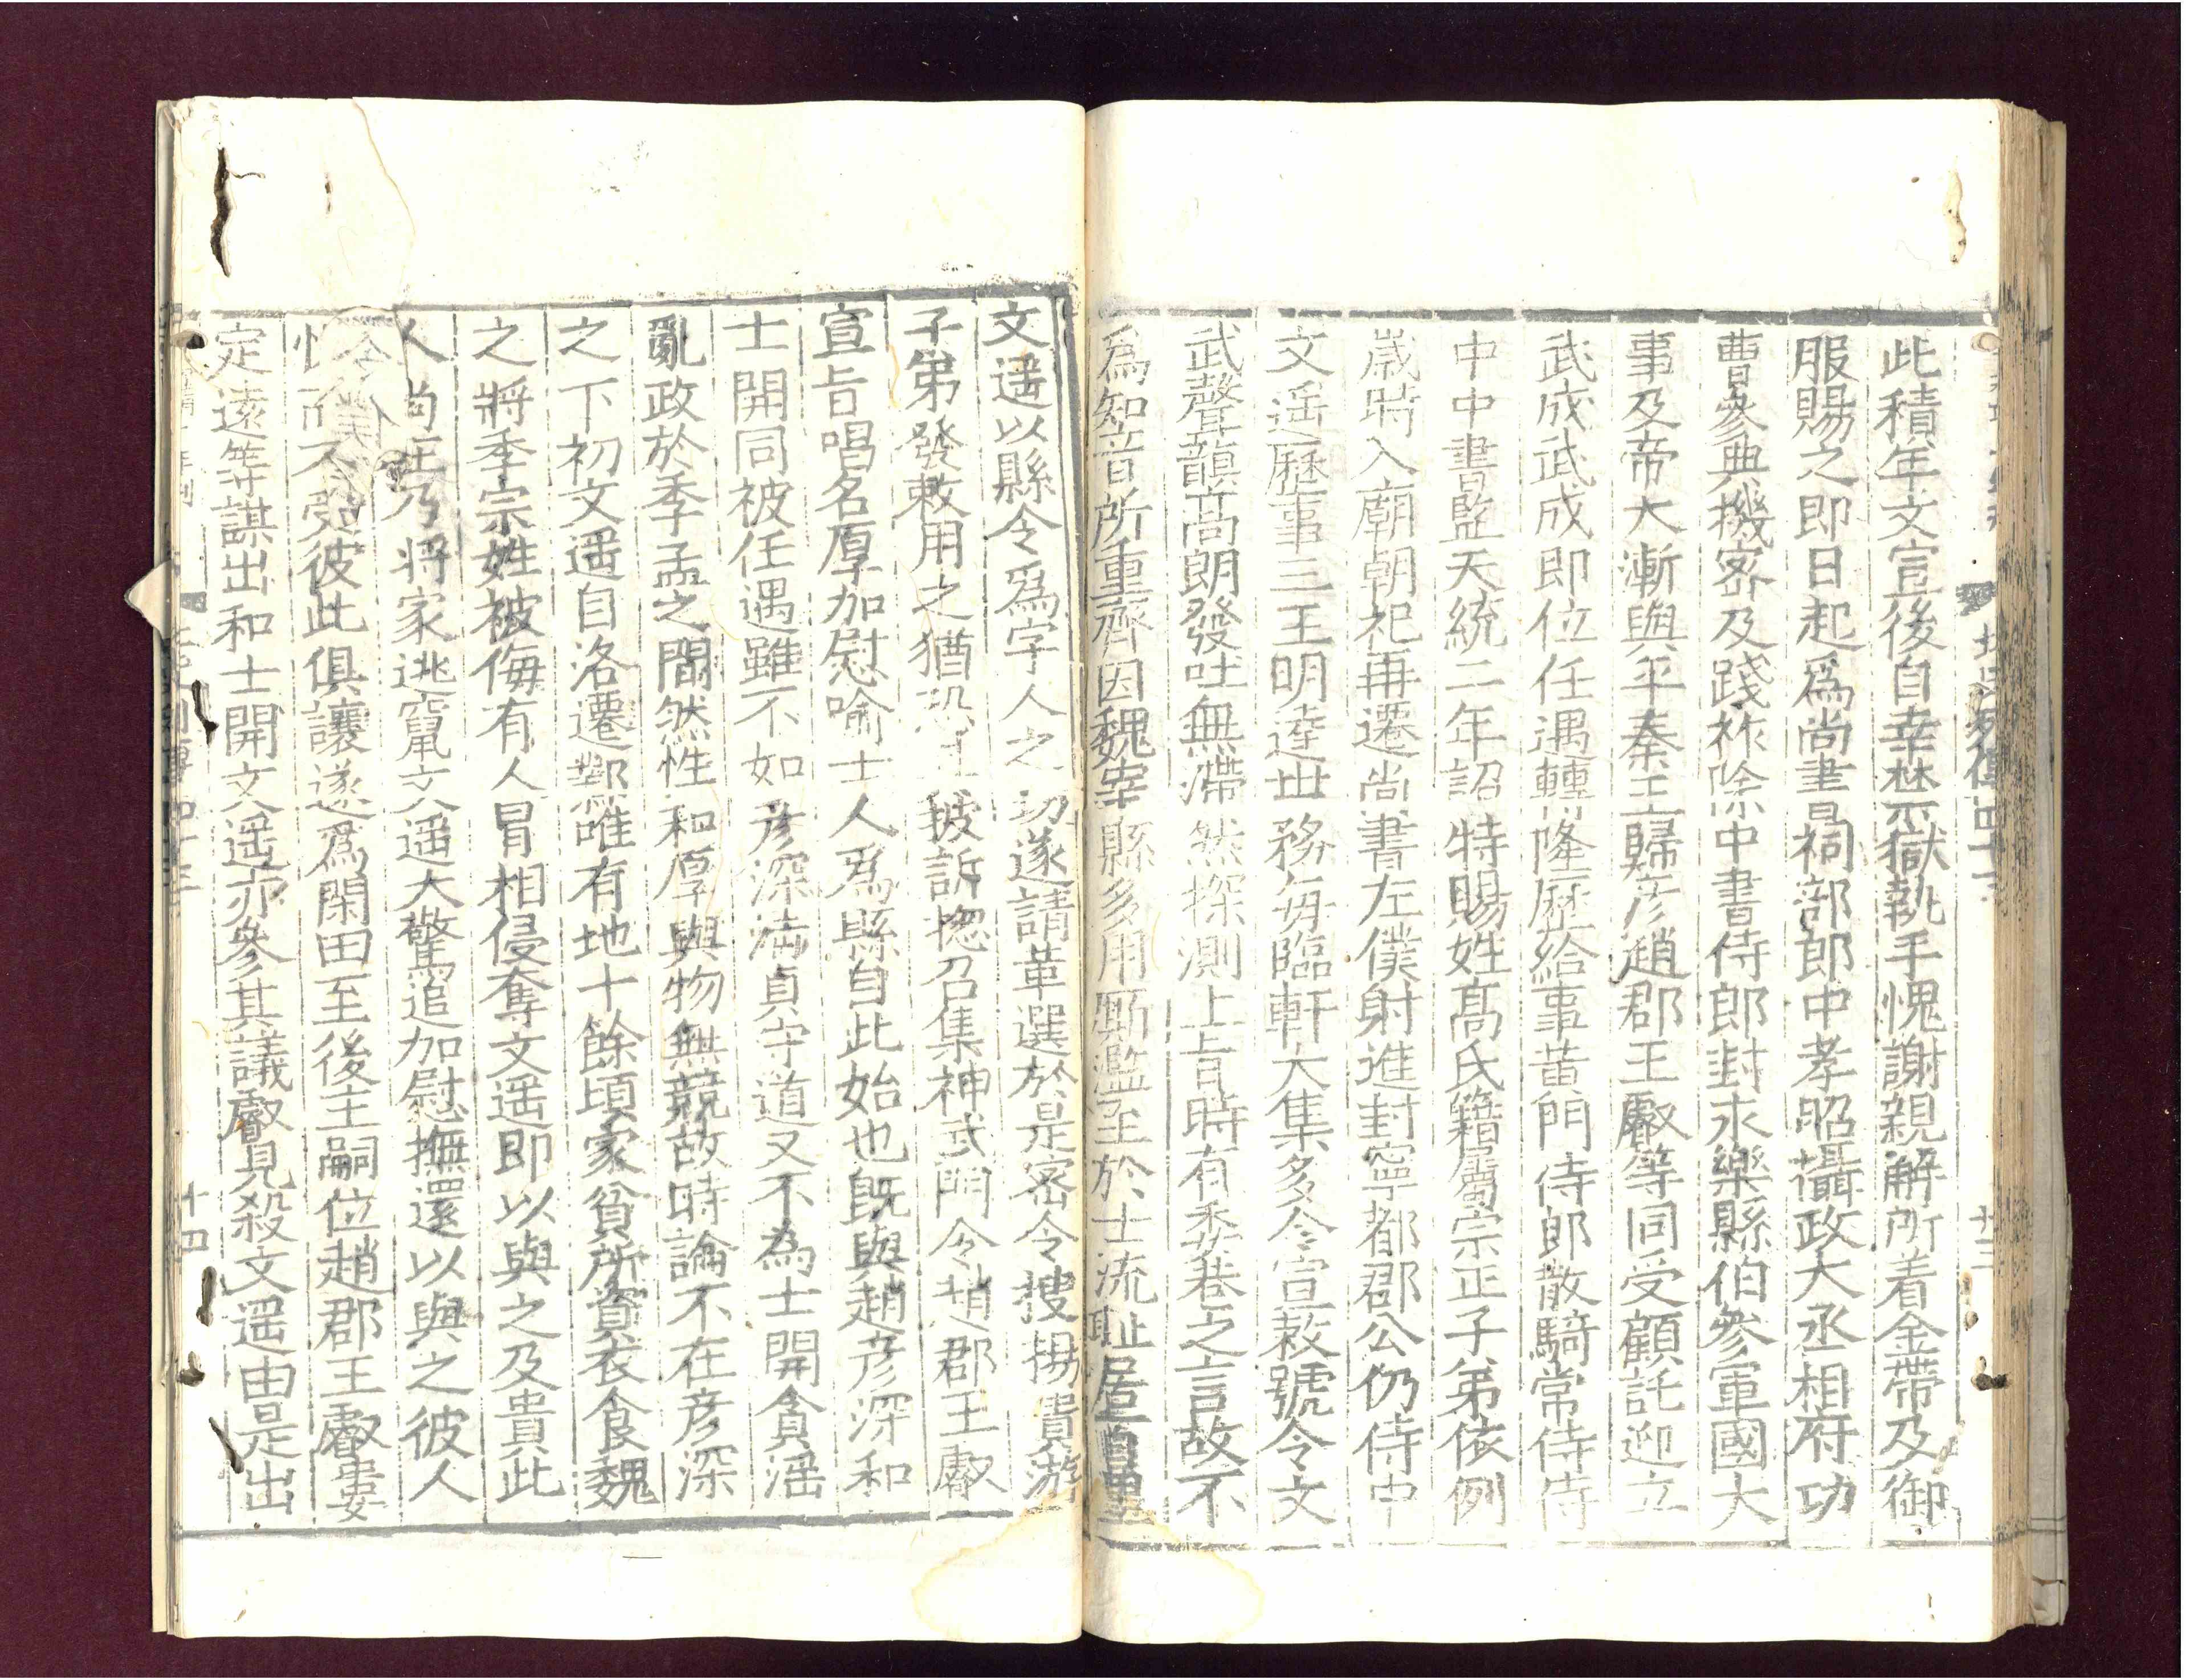 北齊列傳四十二
十三
此積年文宣後自幸禁獄執手愧謝親解所着金帶及御
服賜之即日起爲尚書祠部郎中孝昭攝政大丞相府功
曹參典機密及踐祚除中書侍郎封永樂縣伯參軍國大
事及帝大漸與平秦王歸彦趙郡王叡等同受顧託迎立
武成武成即位任遇轉隆歷給事黃門侍郎散騎常侍侍
中中書監天統二年詔特賜姓髙氏籍屬宗正子弟依例
歲時入廟朝祀再遷尚書左僕射進封寧都郡公仍侍中
文遥歷事三王明逹世務每臨軒大集多令宣敕號令文
武聲韻髙朗發吐無滯然探測上旨時有委巷之言故不
爲知音所重齊因魏宰縣多用厮濫至於士流耻居百里
文遥以縣令爲字人之切遂請革選於是密令搜揚貴游
子弟發敕用之猶恐其披訴揔召集神武門令趙郡王叡
宣旨唱名厚加慰喻士人爲縣自此始也旣與趙彦深和
士開同被任遇雖不如彦深清貞守道又不為士開貪淫
亂政於季孟之間然性和厚與物無競故時論不在彦深
之下初文遥自洛遷鄴唯有地十餘頃家貧所資衣食魏
之將季宗姓被侮有人冒相侵奪文遥即以與之及貴此
人尚在乃將家逃竄文遥大驚追加慰撫還以與之彼人
愧而不受彼此俱讓遂爲閑田至後主嗣位趙郡王叡婁
定遠等謀出和士開文遥亦參其議叡見殺文遥由是出
列傳四十二
十四